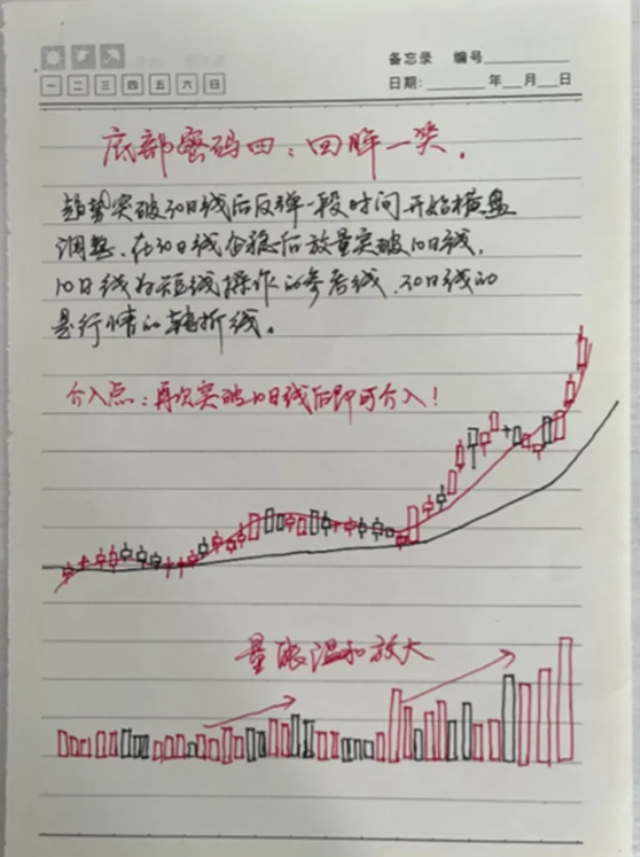 备忘录 编号
一 二 三 四 五 六 日
日期: 年 月 日
底部密码四:回眸一笑.
趋势突破30日线后反弹一段时间开始横盘
调整.在30日线企稳后放量突破10日线,
10日线为短线操作的参考线.30日线的
是行情的转折线。
介入点:再次突破10日线后即可介入!
量能温和放大